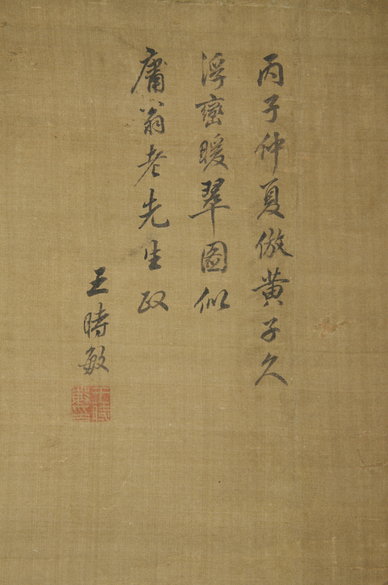 丙子仲夏倣黃子久
浮巒暖翠圖似
庸翁老先生政
王時敏